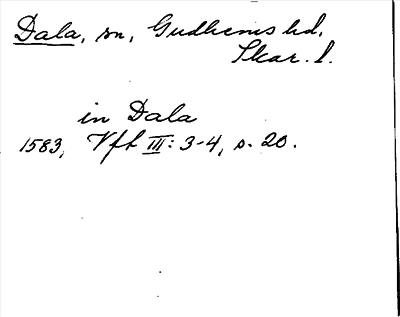 Dala, sn, Gudhems hd,
Skar. l.
in Dala
1583, Vft III: 3-4, s. 20.